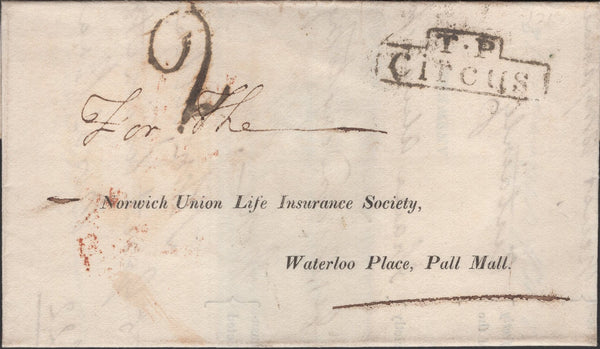 2
T.P
Circus
For the
Norwich Union Life Insurance Society,
Waterloo Place, Pall Mall.